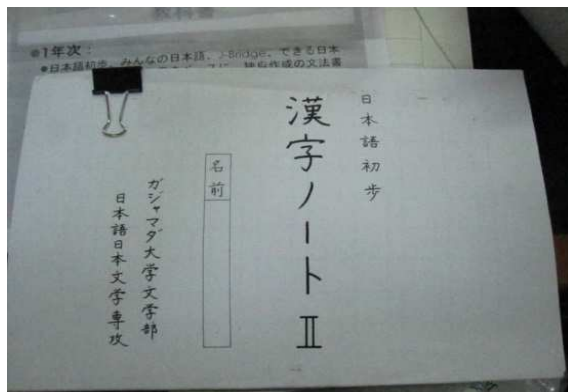 教科書
●1年次：
●日本語初歩、みんなの日本語、J-Bridge、できる日本
独自作成の文法書
日本語初歩
漢字ノートⅡ
名前
ガジャマダ大学文学部
日本語日本文学専攻